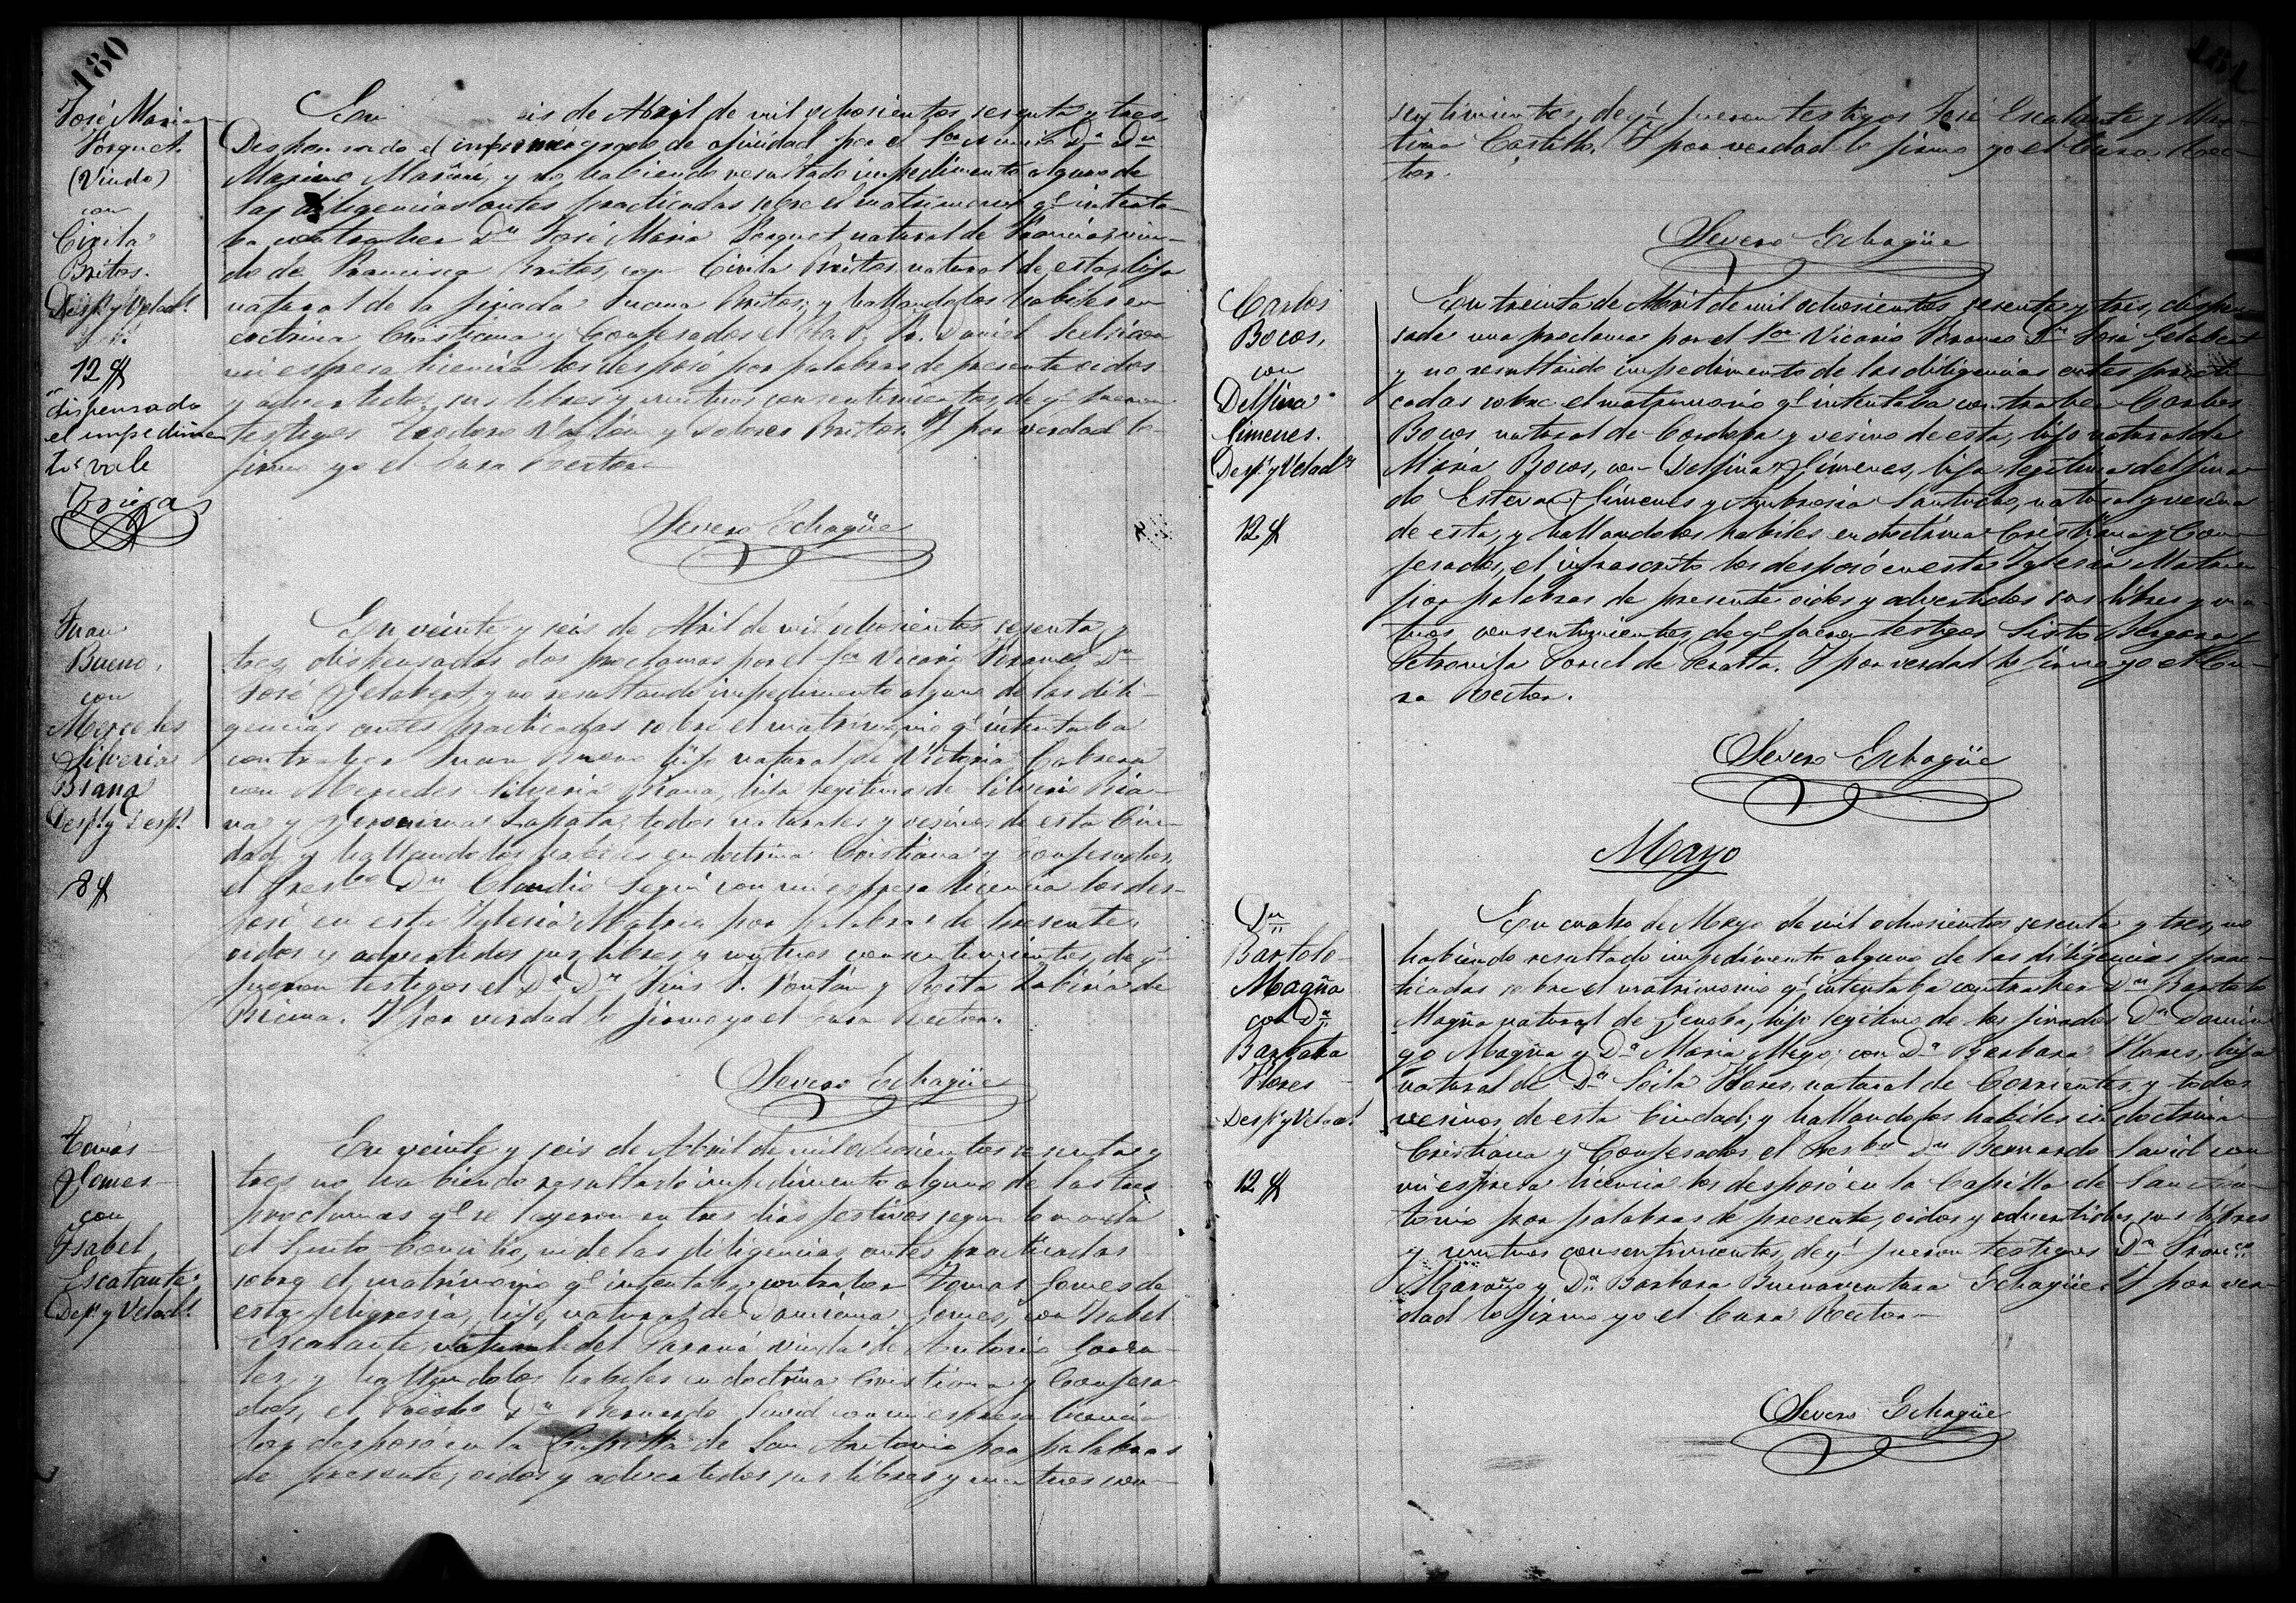 180
José Maria
Pórquet
(Viudo)
con
Cirila
Britos.
Desp.s y Velad.s
12 $
dispensado
el impedimen
to: vale
En is de Abril de mil ochosientos sesenta y tres
Dispensado el impedim grado de afinidad por el Sor D.r D.n
Maximo y no habiendo resultado impedimento alguno de
las diligencias antes practicadas sobre el matrimonio q.e intenta-
ba contraher D.n José Maria Porquet natural de viu-
do de Francisca Britos, con Cirila Britos natural de esta, hija
natural de la finada Juana Britos; y hallandolos habiles en
doctrina Cristiana y Confesados el Fr. Daniel con
mi espresa licencia los desposó por palabras de presente oidos
y advertidos sus libres y mutuos consentimientos, de q.e fueron
testigos Teodoro y Dolores Britos. Y por verdad lo
firmo yo el Cura Rector
Severo Echagüe
Juan
Bueno,
con
Mercedes
Silveria
Briana
Desp.s y Desp.s
8 $
En veinte y seis de Abril de mil ochosientos sesenta y
tres, dispensadas dos proclamas por el Sor Vicario Foraneo D.n
José Gelabert, y no resultando impedimento alguno de las dili-
gencias antes practicadas sobre el matrimonio q.e intentaba
contraher Juan Bueno hijo natural de Victoria Cabrera
con Mercedes Silveria Briana, hija legitima de Silverio Bria-
na y Geronima Zapata, todos naturales y vesinos de esta Ciu-
dad, y hallandolos habiles en doctrina Cristiana y confesados,
el Presb.o D.n Claudio Seguí con mi espresa licencia los des-
posó en esta Iglesia Matriz por palabras de presente,
oidos y advertidos sus libres y mutuos consentimientos, de q.e
fueron testigos el D.r D.n Luis y Rosita de
Y por verdad lo firmo yo el Cura Rector.
Severo Echagüe
Tomás
Gomes
con
Isabel
Escalante
Desp.s y Velad.s
En veinte y seis de Abril de mil ochosientos sesenta y
tres, no habiendo resultado impedimento alguno de las tres
proclamas q.e se leyeron en tres dias festivos segun lo manda
el Santo Concilio, ni de las diligencias antes practicadas
sobre el matrimonio q.e intentaba contraher Tomas Gomes de
esta feligresia, hijo natural de Gomes, con Isabel
Escalante natural del Paraná viuda de Antonio Gonza-
les, y hallandolos habiles en doctrina Cristiana y Confesa-
dos, el Presbo D.n Bernardo David con mi espresa licencia
los desposó en la Capilla de San Antonio por palabras
de presente, oidos y advertidos sus libres y mutuos con-
181
sentimientos, de q.e fueron testigos José Escalante y Mar-
tina Castillo. Y por verdad lo firmo yo el Cura Rec-
tor.
Severo Echagüe
Carlos
Bocos,
con
Delfina
Jimenes.
Desp.s y Velad.s
12 $
En treinta de Abril de mil ochosientos sesenta y tres, dispen-
sada una proclama por el Sor Vicario Foraneo D.n José Gelabert
y no resultando impedimento de las diligencias antes practi-
cadas sobre el matrimonio q.e intentaba contraher Carlos
Bocos natural de Cordoba y vesino de esta, hijo natural de
Maria Bocos, con Delfina Jimenes, hija legitima del fina-
do Estevan Jimenes y Ambrosia Santucho, natural y vesina
de esta, y hallandolos habiles en doctrina Cristiana y Con-
fesados, el infrascrito los desposó en esta Iglesia Matriz
por palabras de presente oidos y advertidos sus libres y mu-
tuos consentimientos, de q.e fueron testigos Sisto Bergara y
Petronila de Peralta. Y por verdad lo firmo yo el Cu-
ra Rector.
Severo Echagüe
Mayo
D.n
Bartolo
Magña
con D.a
Barbara
Flores
Desp.s y Velad.s
12 $
En cuatro de Mayo de mil ochosientos sesenta y tres, no
habiendo resultado impedimento alguno de las diligencias prac-
ticadas sobre el matrimonio q.e intentaba contraher D.n Bartolo
Magña natural de Genova, hijo legitimo de los finados D.n Domin-
go Magña y D.a Maria con D.a Barbara Flores, hija
natural de D.a Flores, natural de Corrientes, y todos
vesinos de esta Ciudad; y hallandolos habiles en doctrina
Cristiana y Confesados, el Presbo D.n Bernardo David con
mi espresa licencia los desposó en la Capilla de San An-
tonio por palabras de presente, oidos y advertidos sus libres
y mutuos consentimientos, de q.e fueron testigos D.n Franco
y D.a Barbara Buenaventura Echagüe. Y por ver-
dad lo firmo yo el Cura Rector
Severo Echagüe